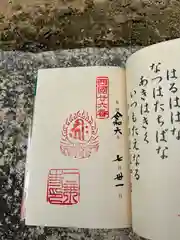 はるははな
なつはたちばな
あきはきく
いつもたえなる
西國廿六番
令和六
七
廿一